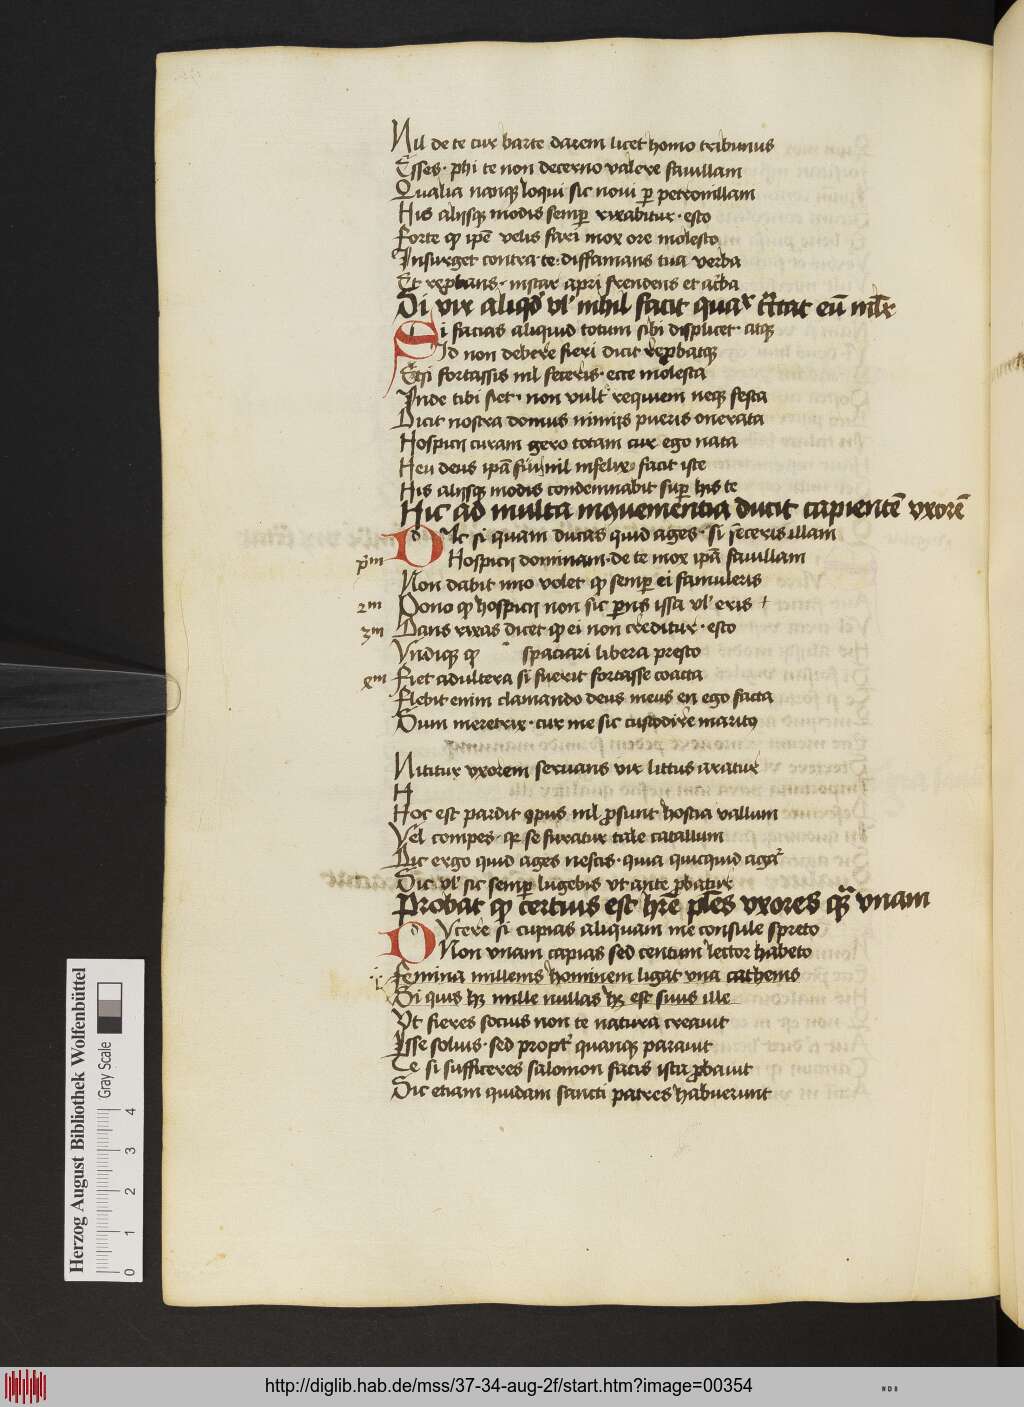 Nil de te cur barte darem licet homo tribunus
Esses · phi te non decerno valere fauillam
Qualia nanque loqui sic noui per petronillam
His alijsque modis semper rixabitur · esto
Forte quod ipse velis fari mox ore molesto
Insurget contra te: diffamans tua verba
Et reprobans · instar apri frendens et acerba
Si vir aliquod vel nihil facit quare eum mulier
Si facias aliquid totum sibi displicet atque
Id non debere fieri dicit reprobatque
Etsi fortassis nil feceris · ecce molesta
Inde tibi fiet · non vult requiem neque festa
Dicit nostra domus nimijs pueris onerata
Hospicij curam gero totam cur ego nata
Heu deus ipsa sum nil infelix facit iste
His alijsque modis condemnabit super his te
Hic ad multa inquementia ducit capientem vxorem
Dic si quam ducas quid ages · si feceris illam
pm Hospicij dominam · de te mox ipsa fauillam
Non dabit imo volet quod semper ei famuleris
2m Pono quod hospicij non sic prens issa vel eris
3m Dans rixas dicet quod ei non creditur · esto
Vndique quod spaciari libera presto
Fiet adultera si fuerit fortasse coacta
Flebit enim clamando deus meus en ego facta
Sum meretrix · cur me sic custodire marito
Nititur vxorem seruans vir littus aratur
H
Hoc est pardit opus nil prosunt hostia vallum
Vel compes · quia se furatur tale catallum
Dic ergo quid ages nescis · quia quicquid agatur
Sic vel sic semper lugebis vt ante probatur
Probat quod certius est habere plures vxores quam vnam
Vtere si cupias aliquam me consule spreto
Non vnam capias sed centum lector habeto
Femina millenis hominem ligat vna cathenis
Si quis habet mille nullas habet est suus ille
Vt fieres socius non te natura creauit
Isse solius · sed propter quanque parauit
Te si sufficeres salomon satis ista probauit
Sic etiam quidam sancti patres habuerunt
Herzog August Bibliothek Wolfenbüttel
Gray Scale
0 1 2 3 4
http://diglib.hab.de/mss/37-34-aug-2f/start.htm?image=00354